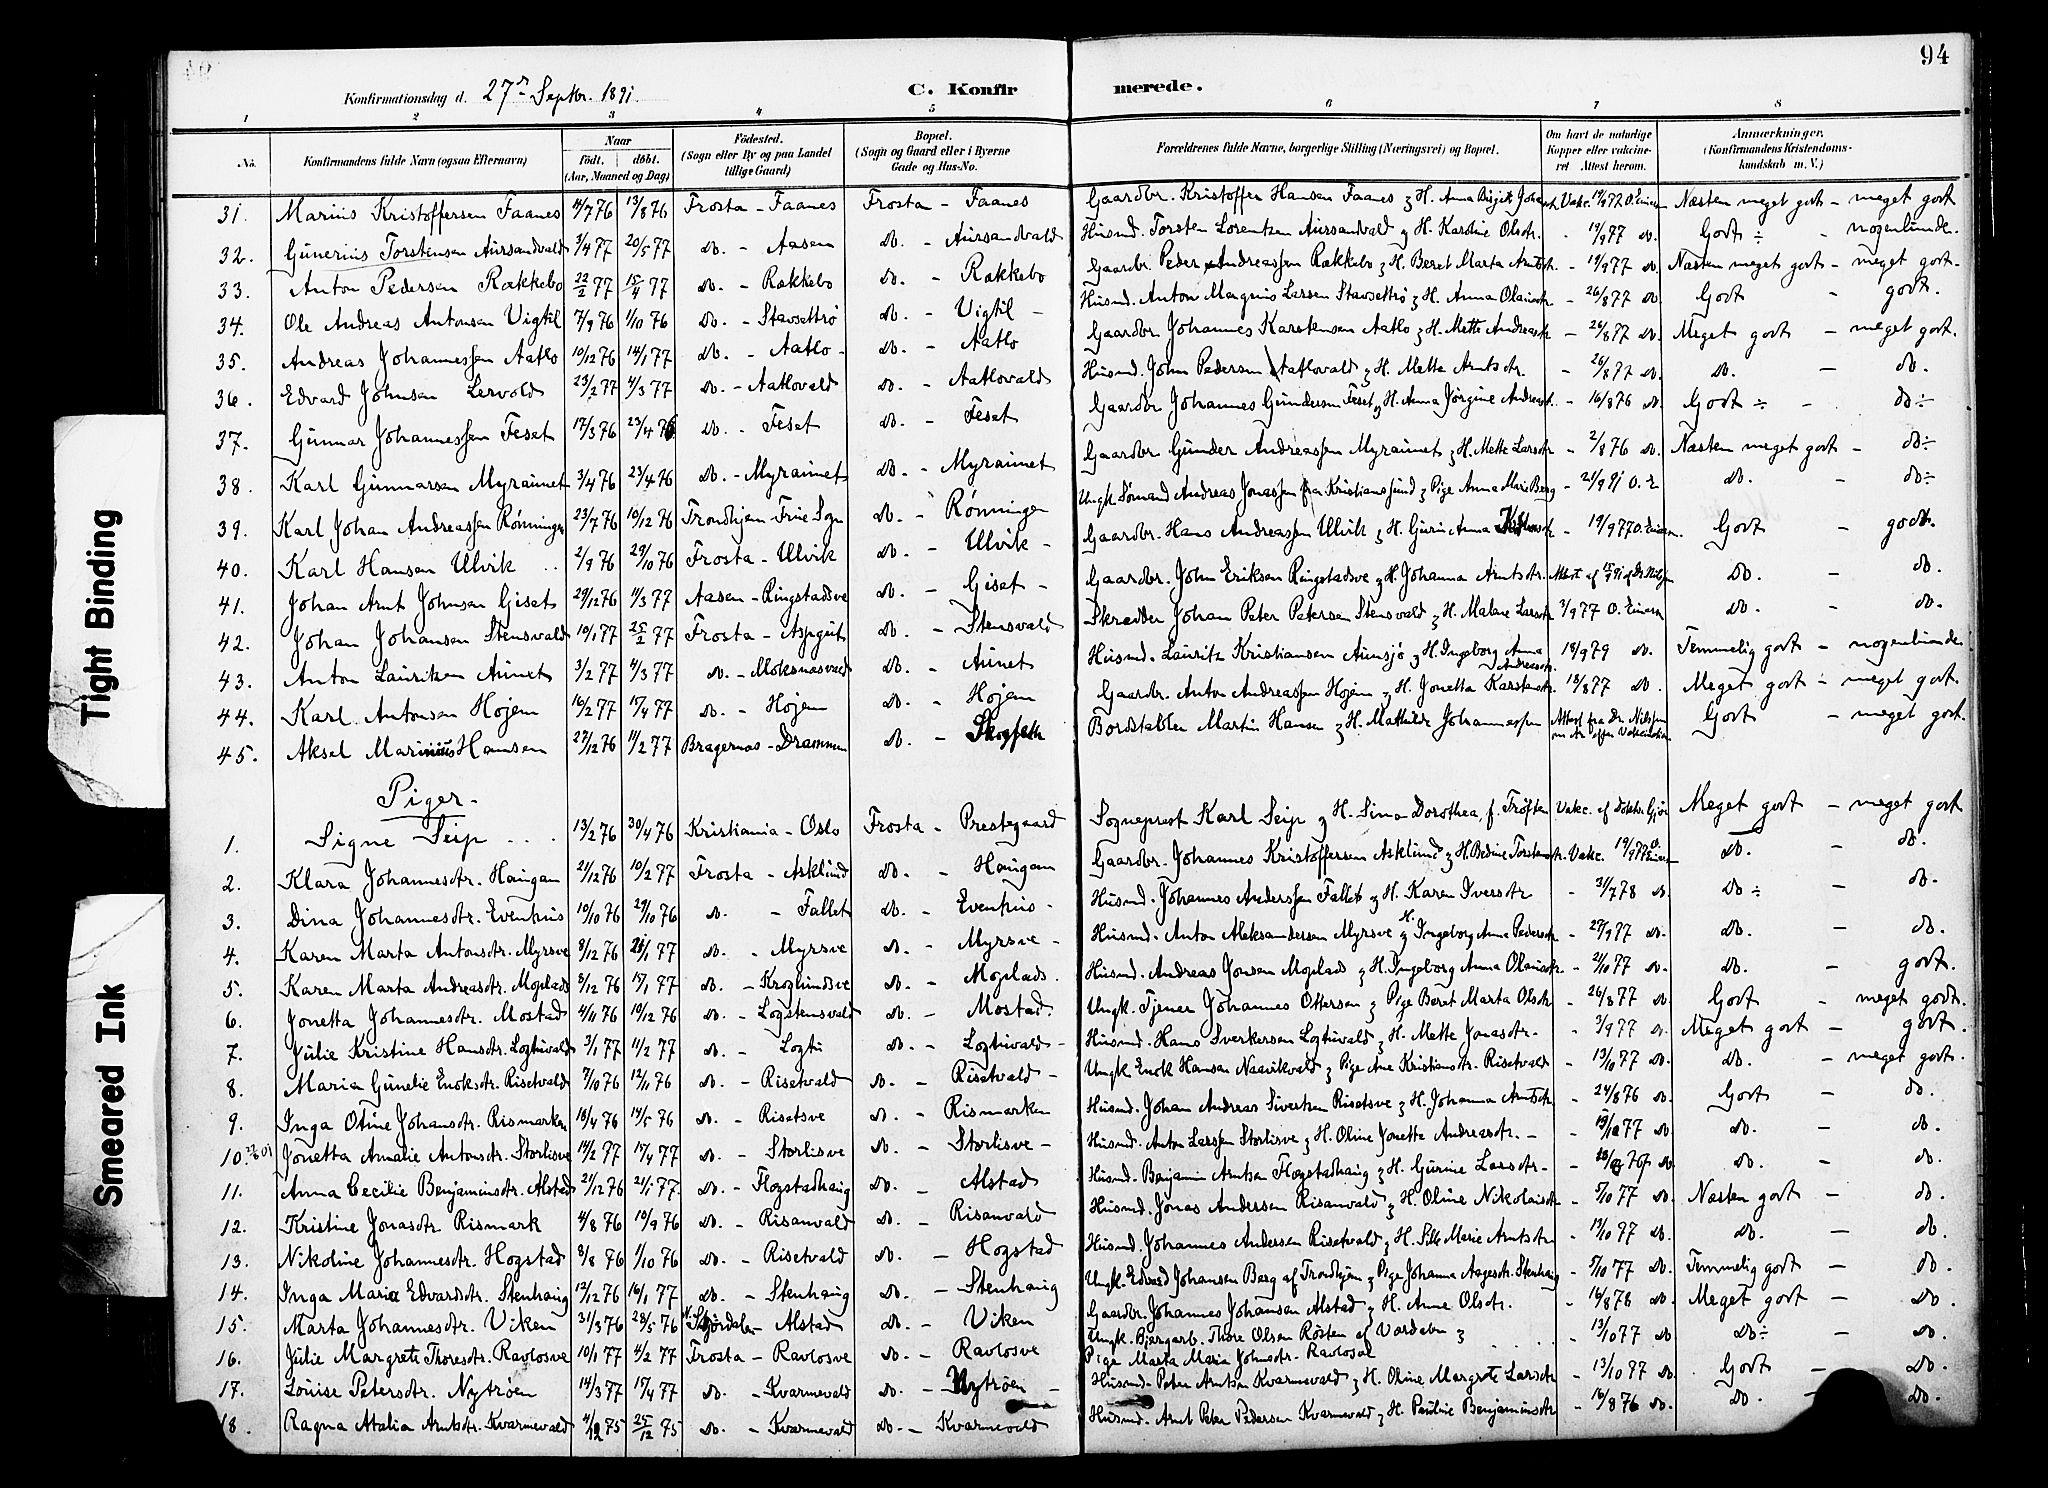 94
Konfirmationsdag d. 27de Septbr. 1891. C. Konfir merede.
1 2 3 4 5 6 7 8
No. Konfirmandens fulde Navn (ogsaa Efternavn) Naar født. døbt. (Aar, Maaned og Dag) Födested. (Sogn eller By og paa Landet tillige Gaard) Bopæl. (Sogn og Gaard eller i Byerne Gade og Hus-No. Forældrenes fulde Navne, borgerlige Stilling (Næringsvei) og Bopæl. Om havt de naturlige Kopper eller vaccineret Attest herom. Anmærkninger. (Konfirmandens Kristendomskundskab m. V.)
31. Marius Kristoffersen Faanes 11/7 76 13/8 76 Frosta - Faanes Frosta - Faanes Gaardbr. Kristoffer Hansen Faanes & H. Anna Birgit Vakc. 19/9 77 O. Einersen Næsten meget godt - meget godt
32. Gunerius Torstensen Aursandvald 3/4 77 20/5 77 do. - Aasen do. - Aursandvald Husmd. Torsten Lorentsen Aursandvald & H. Karoline Olsdtr. - 19/9 77 do. Godt ÷ - nogenlunde.
33. Anton Pedersen Rækkebo 22/2 77 15/4 77 do. - Rækkebo do. - Rækkebo Gaardbr. Peder Andreassen Rækkebo & H. Beret Marta Arntsdtr. - 19/9 77 do. Næsten meget godt - meget godt.
34. Ole Andreas Antonsen Vigtil 7/9 76 1/10 76 do. - Stavsettrø do. - Vigtil - Husmd. Anton Magnus Larsen Stavsettrø & H. Anna Olausdtr - 26/8 77 do. Godt - godt.
35. Andreas Johannessen Aatlo 10/12 76 14/1 77 do. - Aatlo - do. - Aatlo Gaardbr. Johannes Karstensen Aatlo & H. Mette Andreasdtr - 26/8 77 do. Meget godt - meget godt.
36. Edvard Johnsen Lervold 23/2 77 4/3 77 do. - Aatlovald do. - Aatlovald Husmd. John Pedersen Aatlovald & H. Mette Arntsdtr. - 26/8 77 do. do. - do.
37. Gunnar Johannessen Feset 17/3 76 23/4 76 do. - Feset do. - Feset Gaardbr Johannes Gundersen Feset & H. Anna Jørgine Andreasdtr. - 16/8 76 do. Godt ÷ - do ÷
38. Karl Gunnarsen Myraunet 3/4 76 23/4 76 do. - Myraunet do. - Myraunet Gaardbr Gunder Andreassen Myraunet & H. Mette Larsdtr - 2/8 76 do. Næsten meget godt - do ÷
39. Karl Johan Andreassen Rønningen 23/7 76 10/12 76 Trondhjem - Frue Sogn do. - Rønningen Ungk. Sømand Andreas Jonassen fra Kristianssund & Pige Anna Marie Berg - 21/9 91 O. E do. - do ÷
40. Karl Hansen Ulvik 2/9 76 29/10 76 Frosta - Ulvik do. - Ulvik - Gaardbr. Hans Andreassen Ulvik & H. Guri Anna - 19/9 77 O. Einersen. Godt - godt.
41. Johan Arnt Johnsen Giset 29/12 76 11/3 77 Aasen - Ringstadsve do. - Giset - Gaardbr. John Eriksen Ringstadsve & H. Johanna Arntsdtr. Attest af 15/9 91 af Dr. Nilsen do. - do.
42. Johan Johansen Stensvald 10/1 77 25/2 77 Frosta - Aspgut do. - Stensvald Skrædder Johan Peter Petersen Stensvald & H. Malene Larsdtr 3/9 77 O. Einersen do. - do.
43. Anton Lauritsen Aunet 3/2 77 4/3 77 do. - Moksnesvald do. - Aunet Husmd. Lauritz Kristiansen Aunsjø & H. Ingeborg Anna Andreasdtr. 18/9 79 do. Temmelig godt - nogenlunde
44. Karl Antonsen Hojem 16/2 77 15/4 77 do. - Højem do. - Højem Gaardbr. Anton Andreassen Højem & H. Jonetta Karstensdtr. 18/8 77 do. Meget godt - meget godt.
45. Aksel Marinius Hansen 27/12 76 11/2 77 Bragernæs - Drammen do. - Bordstabler Martin Hansen & H. Mathilde Johannessen Attest fra Dr. Nilssen Godt - meget godt.
Piger -
1. Signe Seip 13/2 76 30/4 76 Kristiania - Oslo Frosta - Prestegaard Sogneprest Karl Seip & H. Sina Dorothea, f. Trøften Vakc. af Doktor Gjør Meget godt - meget godt
2. Klara Johannesdtr. Haugan 21/12 76 10/2 77 Frosta - Asklund do. - Haugan Gaardbr. Johannes Kristoffersen Asklund & H. Bedine Torstensdtr. Vakc. 19/9 77 O. Einersen do. - do.
3. Dina Johannesdtr. Evenhus 10/10 76 29/10 76 do. - Fallet do. - Evenhus - Husmd. Johannes Anderssen Fallet & H. Karen Iversdtr - 31/7 78 do. do ÷ - do.
4. Karen Marta Antonsdtr. Myrsve 8/12 76 21/1 77 do. - Myrsve do. - Myrsve - Husmd. Anton Aleksandersen Myrsve & H. Ingeborg Anna Pedersdtr - 27/9 77 do. do. - do.
5. Karen Marta Andreasdtr. Moplads 8/12 76 15/1 77 do. - Kroglundsve do. - Moplads. Husmd. Andreas Jonsen Moplads & H. Ingeborg Anna Olausdtr. - 2/10 77 do. do. - godt.
6. Jonetta Johannesdtr. Mostad 4/11 76 10/12 76 do. - Logstensvald do. - Mostad. Ungk. Tjener Johannes Ottersen & Pige Beret Marta Olsdtr - 26/8 77 do Godt - meget godt.
7. Julie Kristine Hansdtr. Logtuvald 3/1 77 11/2 77 do. - Logtu do. - Logtuvald - Husmd. Hans Sverkersen Logtuvald & H. Mette Jonasdtr - - 3/9 77 do. Meget godt - godt.
8. Maria Gunelie Enoksdtr. Risetvald 7/10 76 12/11 76 do. - Risetvald do. - Risetvald - Ungk Enok Hansen Naavikvald & Pige Ane Kristiansdtr. Risetvald - 13/10 77 do. do. - meget godt.
9. Inga Otine Johansdtr. Rismarken 18/4 76 14/5 76 do. - Risetsve do. - Rismarken Husmd. Johan Andreas Sivertsen Risetsve & H. Johanna Arntsdtr - 24/8 76 do. Godt - do.
10. Jonetta Amalie Antonsdtr. Storlisve 14/2 77 15/4 77 do. - Storlisve do. - Storlisve - Husmd. Anton Larssen Storlisve & H. Oline Jonette Andreasdtr. - - 13/10 77 do. do. - do.
11. Anna Cecilie Benjaminsdtr. Alstad 21/12 76 21/1 77. do. - Flogstadhaug do. - Alstad Husmd. Benjamin Arntsen Flogstadhaug & H. Gurine Larsdtr - do. do. - do.
12. Kristine Jonasdtr Rismark 4/8 76 10/9 76 do. - Risanvald do. - Risanvald Husmd. Jonas Andersen Risanvald & H. Oline Nikolaisdtr - 5/10 77 do. Næsten godt - do.
13. Nikoline Johannesdtr. Hogstad 8/8 76 1/10 76 do. - Risetvald do. - Hogstad Husmd. Johannes Andersen Risetvald & H. Sille Marie Arntsdtr - 13/10 77 do. do. - do.
14. Inga Maria Edvardsdtr. Stenhaug 12/12 76 16/1 77 do. - Stenhaug do. - Stenhaug Ungk. Edvard Johansen Berg af Trondhjem & Pige Johanna Aagesdtr. Stenhaug - 5/10 77 do. Temmelig godt - do.
15. Marta Johannesdtr. Viken 31/3 76 28/5 76 Stjørdalen - Alstad do. - Viken Gaardbr. Johannes Johansen Alstad & H. Anne Olsdtr. - 16/8 78 do. Meget godt - do.
16. Julie Margrete Thoresdtr. Ravlosve 10/1 77 4/2 77 Frosta - Ravlosve do. - Ravlosve Ungk. Bjergarb. Thore Olsen Røsten af Værdalen & Pige Marta Maria Johnsdtr. Ravlosve - 13/10 77 do do ÷ - do.
17. Louise Petersdtr. Nytrøen 14/3 77 15/4 77 do. - Kvarmevald do. - Nytrøen - Husmd. Peter Arntsen Kvarmevald & H. Oline Margrete Larsdtr - 13/10 77 do. Godt - do.
18. Ragna Atalia Arntsdtr. Kvarmevald 4/12 75 25/12 75 do. - Kvarmevald do. - Kvarmevald Husmd. Arnt Peter Pedersen Kvarmevald & H. Pauline Benjaminsdtr - 16/8 76 do. do. - do.
Tight Binding
Smeared Ink